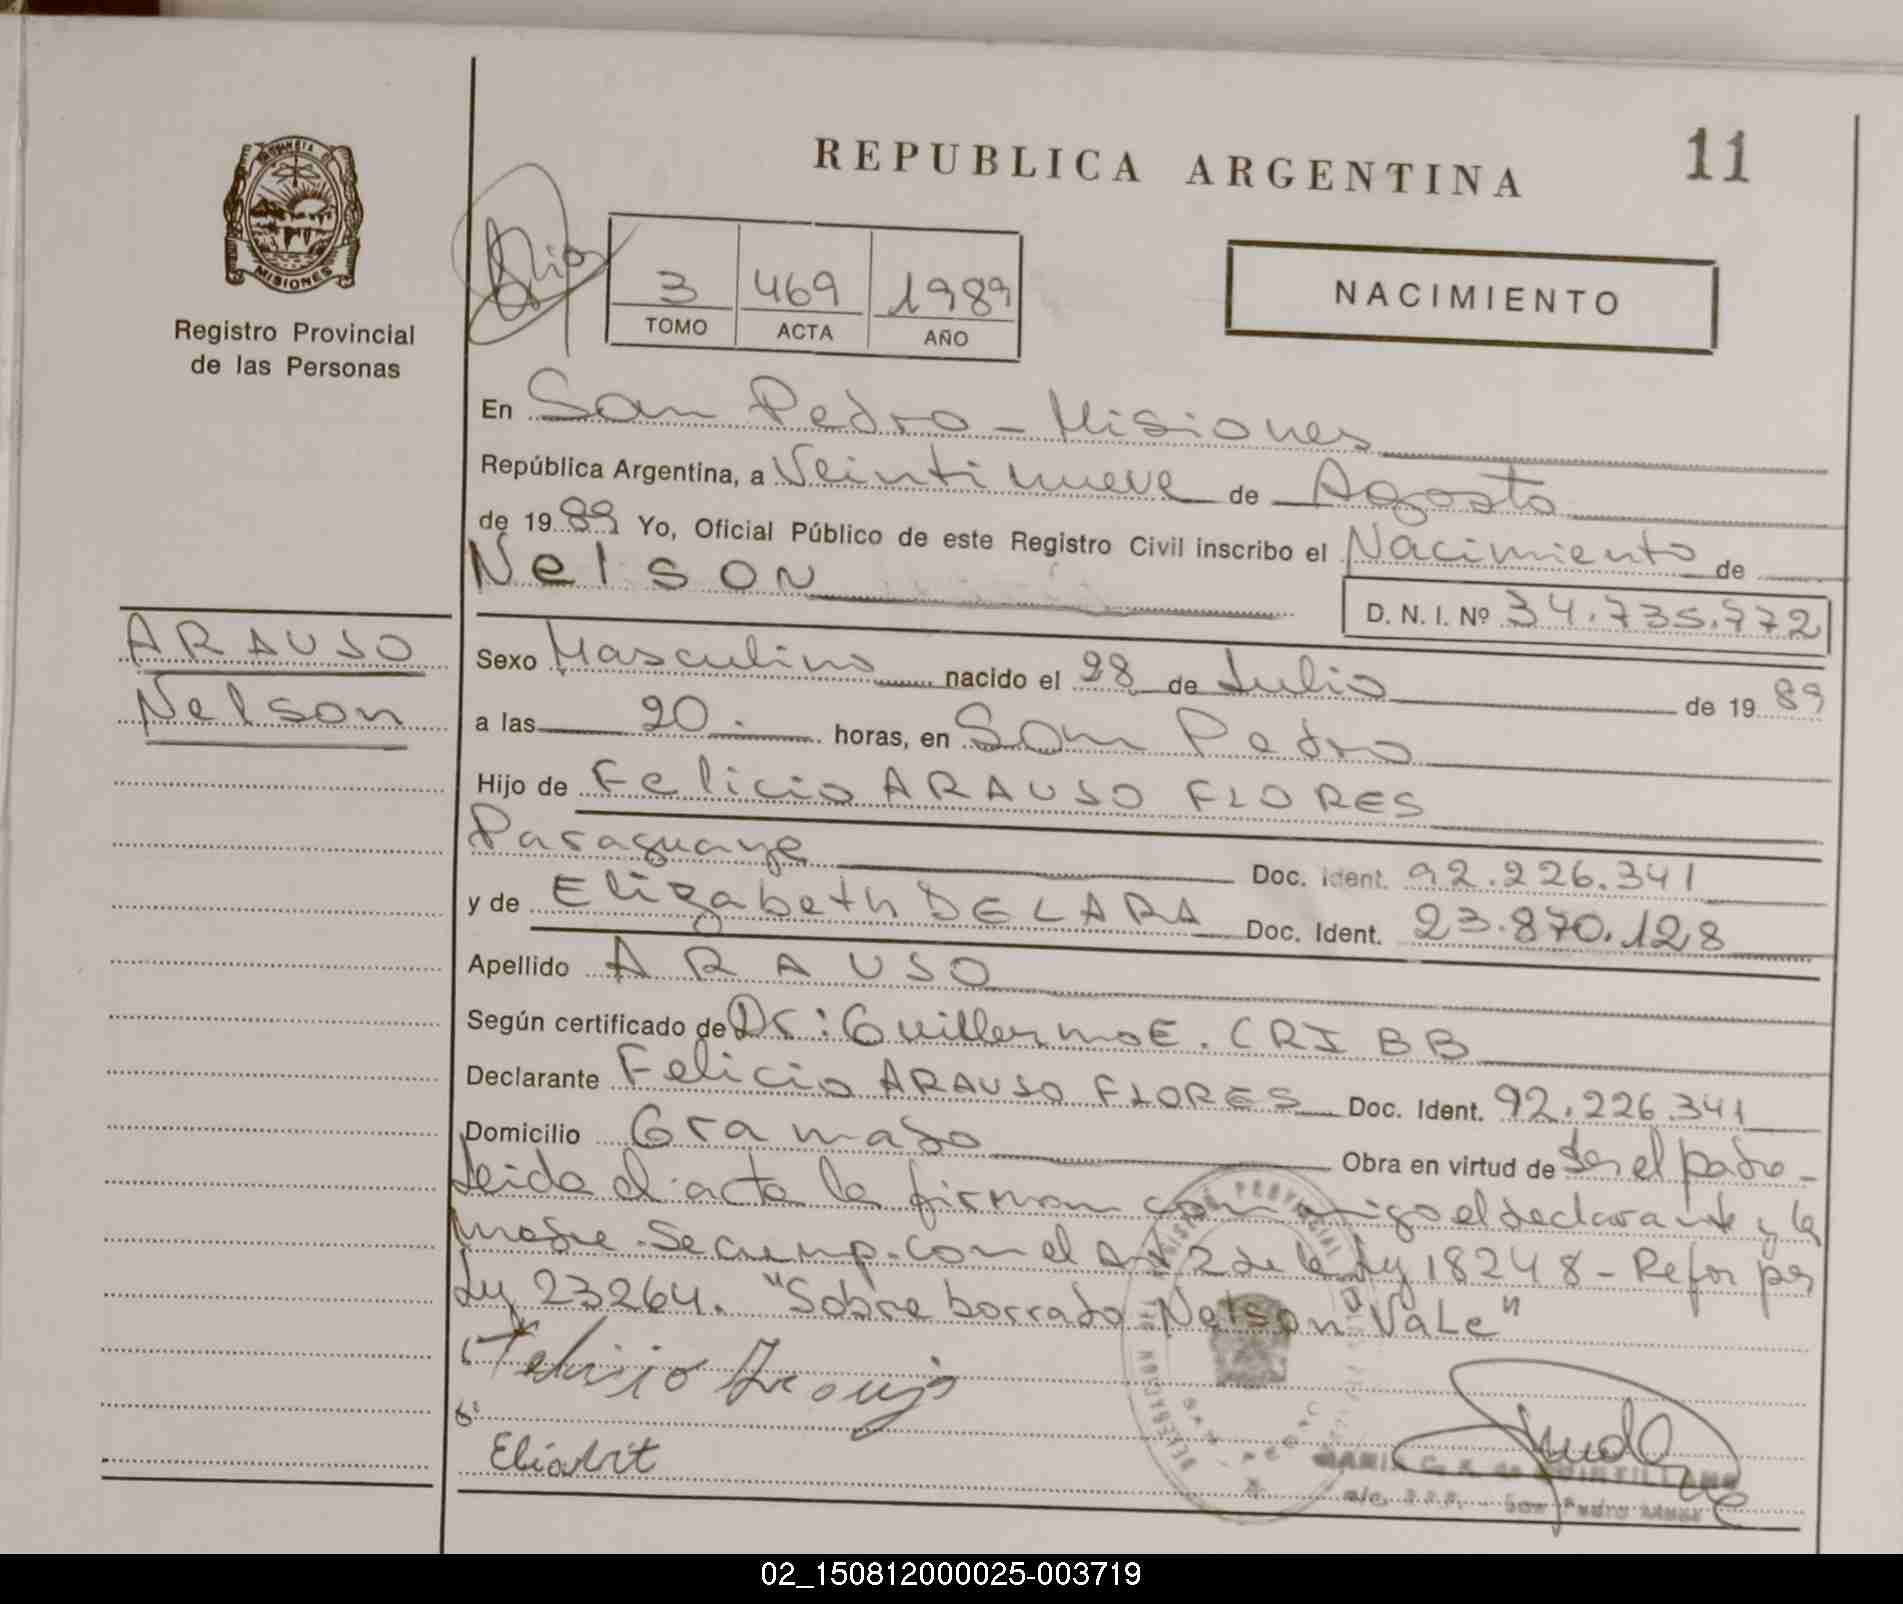 REPUBLICA ARGENTINA
11
PROVINCIA DE
MISIONES
Registro Provincial
de las Personas
3 469 1989
TOMO ACTA AÑO
NACIMIENTO
En San Pedro - Misiones
República Argentina, a Veintinueve de Agosto
de 1989 Yo, Oficial Público de este Registro Civil inscribo el Nacimiento de
Nelson
D. N. I. Nº 34.735.772
ARAUSO
Nelson
Sexo Masculino nacido el 28 de Julio de 1989
a las 20.- horas, en San Pedro
Hijo de Felicio ARAUSO FLORES
Paraguaya Doc. Ident. 92.226.341
y de Elizabeth DE LARA Doc. Ident. 23.870.128
Apellido ARAUSO
Según certificado de Dr: Guillermo E. CRIBB
Declarante Felicio ARAUSO FLORES Doc. Ident. 92.226.341
Domicilio Gramado Obra en virtud de Ser el padre -
Leida el acta la firman conmigo el declarante y la
madre. Se cump. con el art 2 de la Ley 18248 - Refor por
Ley 23264. "Sobre borrado Nelson Vale"
Elisabit
San Pedro
02_150812000025-003719